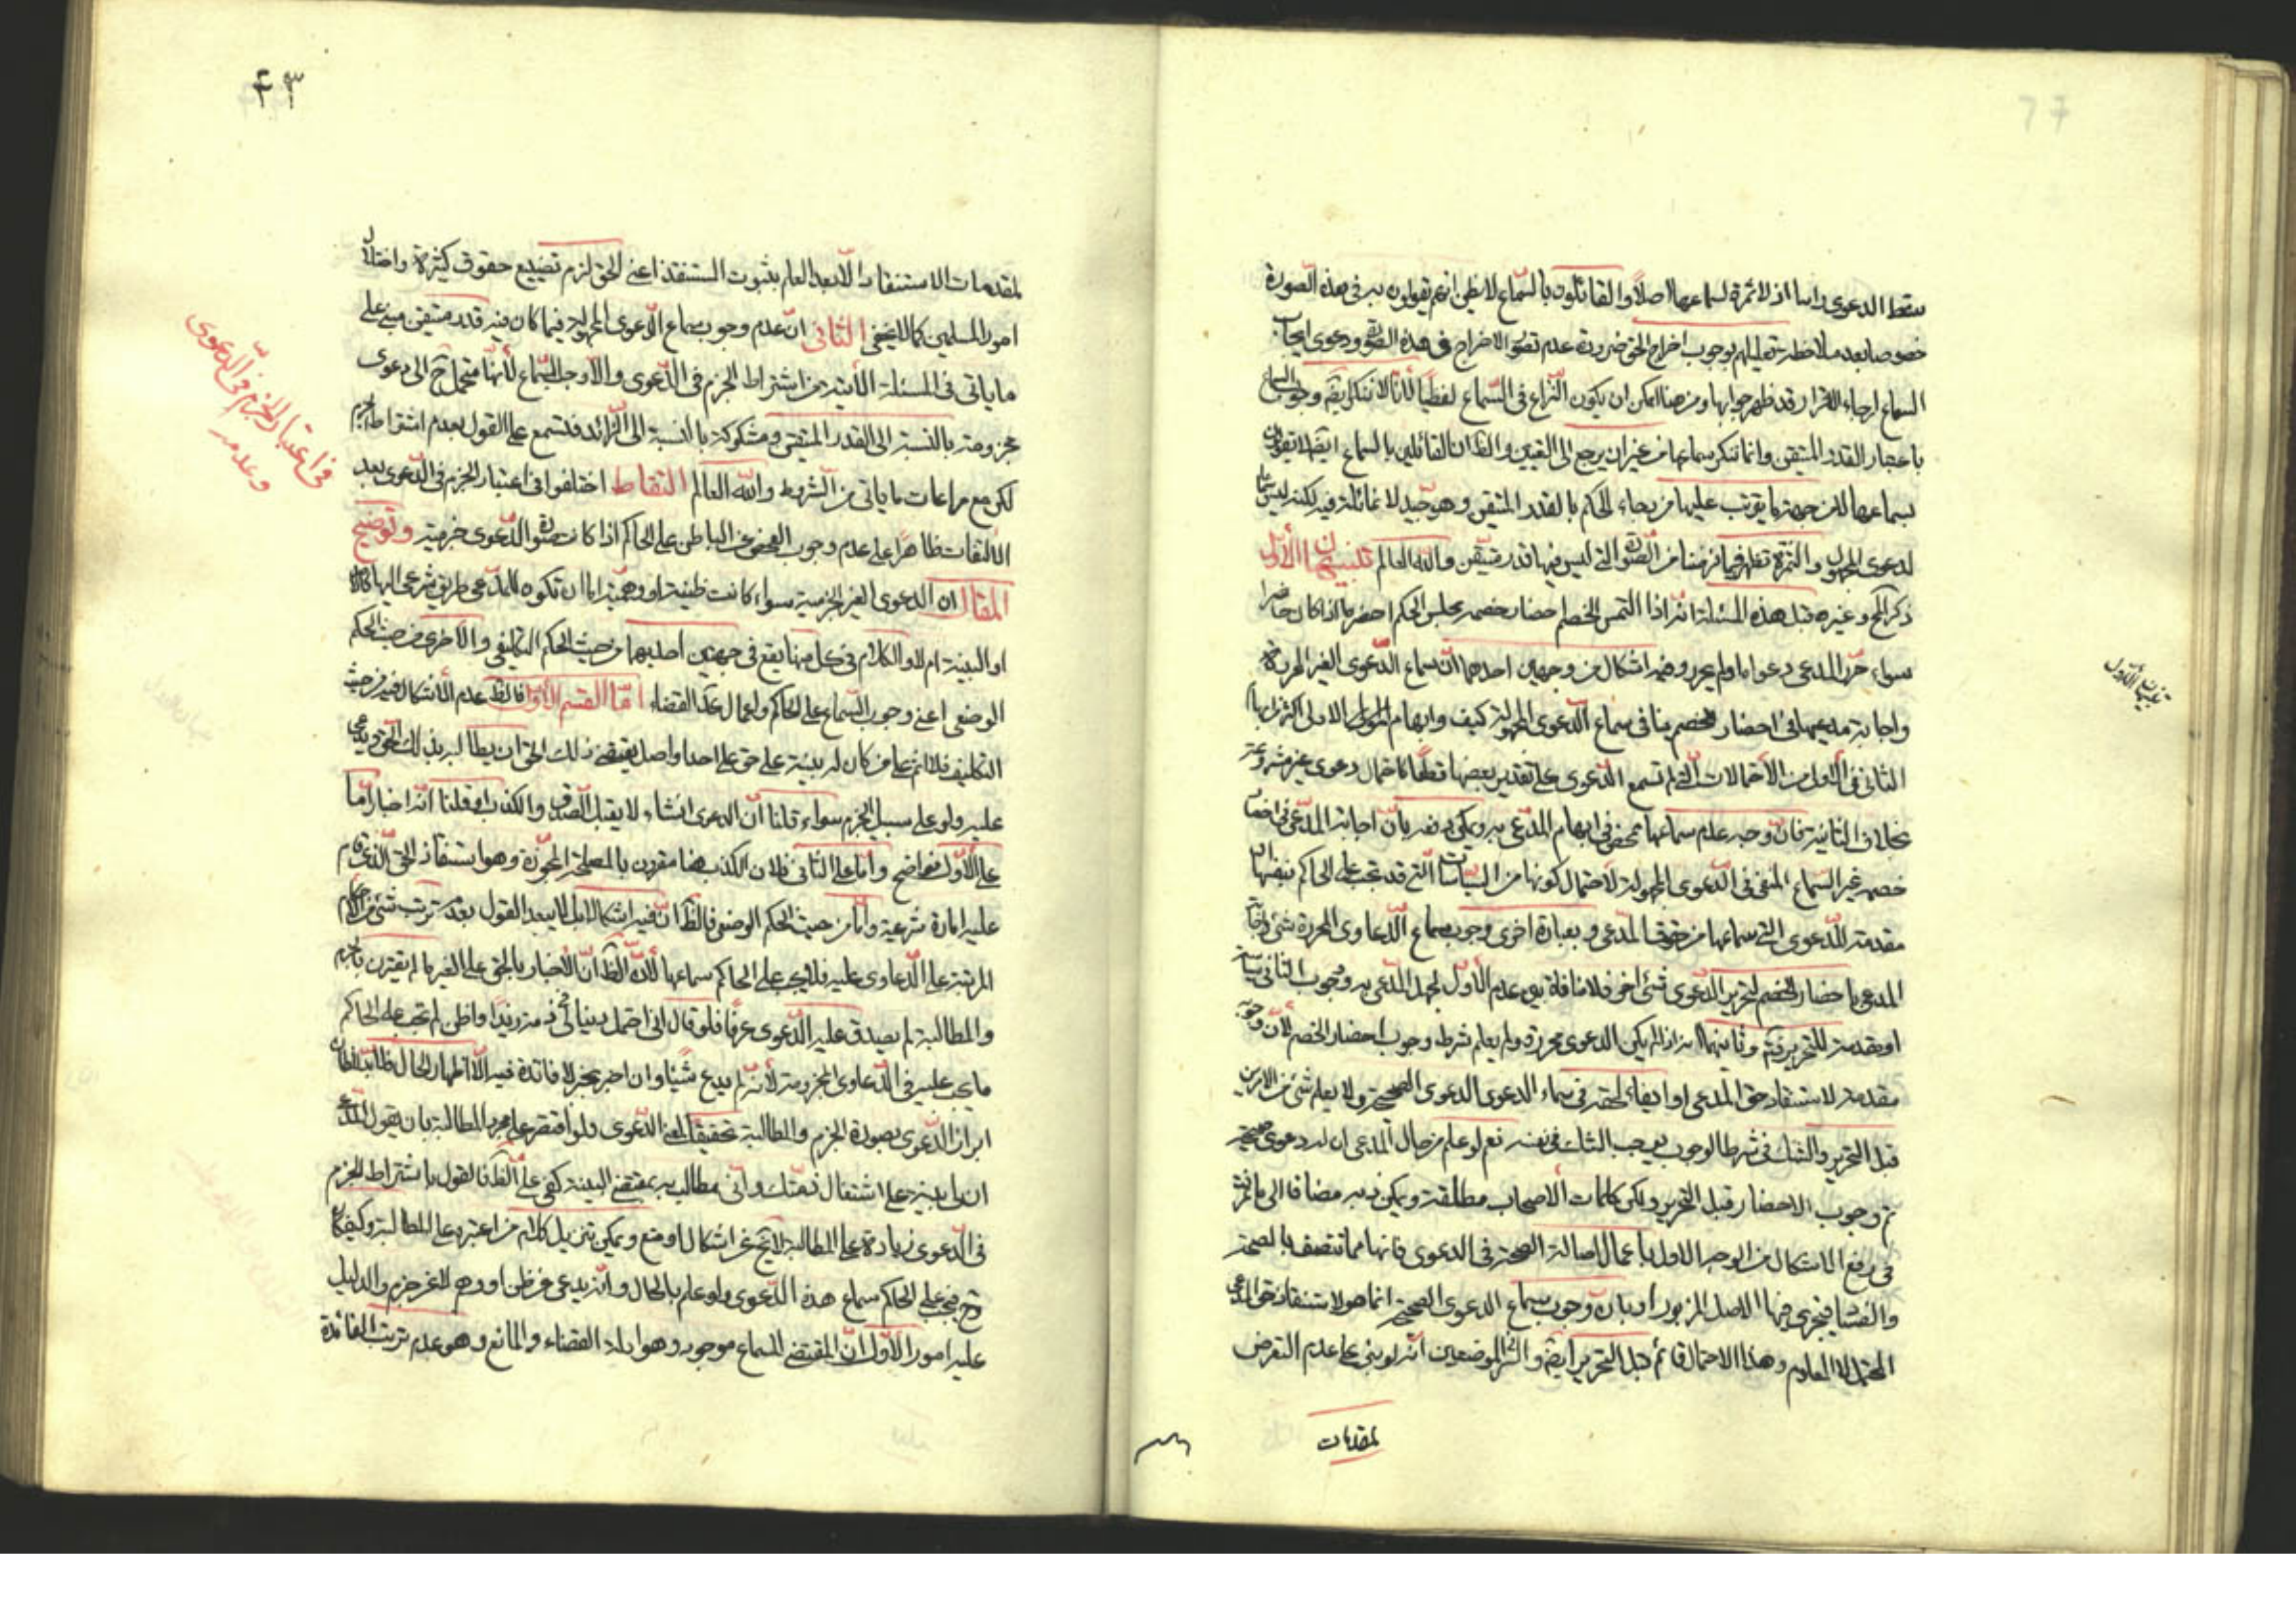 سقط الدعوى راسا اذ لا ثمرة لسماعها اصلا والقائلون بالسماع لا يظن انهم يقولون به فى هذه الصورة
خصوصا بعد ملاحظة تعليلهم بوجوب اخراج الحق ضرورة عدم تصور الاخراج فى هذه الصورة ودعوى ايجاب
السماع ارجاء للاقرار قد ظهر جوابها ومن هنا امكن ان يكون النزاع فى السماع لفظيا لأنا لا ننكر وجوب السماع
باعتبار القدر المتيقن وانما ننكر سماعها من غير ان يرجع الى اليقين والظ ان القائلين بالسماع ايضا لا يقولون
بسماعها الا من جهة ما يترتب عليها من الحكم بالقدر المتيقن وهو جيد لا غائلة فيه لكنه ليس سماعا
لدعوى المجهول والثمرة تظهر فيما فرضنا من الصور التى ليس فيها قدر متيقن والله العالم تنبيهان الأول
ذكر المحقق وغيره قبل هذه المسئلة انه اذا التمس الخصم احضار خصمه مجلس الحكم احضره اذا كان حاضرا
سواء حرر المدعى دعواه ام لم يحرر وفيه اشكال من وجهين احدهما ان سماع الدعوى الغير المحررة
واجابة مدعيها فى احضار الخصم ينافى سماع الدعوى المجهولة كيف وابهام الاولى اكثر من ابهام
الثانى فى الاول من الاحتمالات التى لم تسمع الدعوى على تقدير بعضها قطعا كاحتمال دعوى غير مشروعة
بخلاف الثانية فان وجه عدم سماعها منحصر فى ابهام المدعى به ويمكن دفعه بان اجابة المدعى فى احضار
خصمه غير السماع المنفى فى الدعوى المجهولة لاحتمال كونها من السياسات التى قد تجب على الحاكم
مقدمة للدعوى التى سماعها من حقوق المدعى وبعبارة اخرى وجوب سماع الدعاوى المحررة شئ واجابة
المدعى باحضار الخصم لتحرير الدعوى شئ اخر فلا منافاة بين عدم الأول لجهل المدعى به وجوب الثانى
او مقدمة للتحرير وثانيهما انه اذا لم يكن الدعوى محررة ولم يعلم شرط وجوب احضار الخصم لأن وجوبه
مقدمة لاستنقاذ حق المدعى او ايفاء لحقه فى سماع الدعوى الدعوى الصحيحة ولا يعلم شئ من الامرين
قبل التحرير والشك فى شرط الوجوب يوجب الشك فى نفسه نعم لو علم من حال المدعى ان له دعوى صحيحة
تم وجوب الاحضار قبل التحرير ولكن كلمات الاصحاب مطلقة ويمكن دفعه مضافا الى
فى رفع الاشكال من الوجه الاول باعمال اصالة الصحة فى الدعوى فانها مما تتصف بالصحة
والفساد فيجرى فيها الاصل المزبور او بان وجوب سماع الدعوى الصحيحة انما هو لاستنقاذ حق المدعى
المحتمل لا المعلوم وهذا الاحتمال قائم قبل التحرير ايضا والسر فى الموضعين انه لو بنى على عدم التعرض
لمقدمات
تنبيهان الأول
٤٣
لمقدمات الاستنقاذ الا بعد العلم بثبوت المستنقذ اعنى الحق لزم تضييع حقوق كثيرة واختلال
امور المسلمين كما لا يخفى الثانى ان عدم وجوب سماع الدعوى المجهولة فيما كان فيه قدر متيقن مبنى على
ما ياتى فى المسئلة الآتية من اشتراط الجزم فى الدعوى والا وجب السماع لأنها منحلة ح الى دعوى
مجزومة بالنسبة الى القدر المتيقن ومشكوكة بالنسبة الى الزائد فتسمع على القول بعدم اشتراط الجزم
لكن مع مراعات ما ياتى من الشروط والله العالم التقاط اختلفوا فى اعتبار الجزم فى الدعوى بعد
الاتفاق ظاهرا على عدم وجوب الفحص عن الباطن على الحاكم اذا كانت صورة الدعوى جزمية وتوضيح
المقال ان الدعوى الغير الجزمية سواء كانت ظنية او وهمية اما ان تكون للمدعى طريق شرعى اليها كالاقرار
او البينة ام لا والكلام فى كل منها يقع فى جهتين احديهما من حيث الحكم التكليفى والاخرى من حيث الحكم
الوضعى اعنى وجوب السماع على الحاكم واعمال القضاء اما القسم الأول فالظ عدم الاشكال فيه من حيث
التكليف فلا اثم على من كان له بينة على حق على احد او اصل يقتضى ذلك الحق ان يطالبه بذلك الحق ويدعى
عليه ولو على سبيل الجزم سواء قلنا ان الدعوى انشاء لا يقبل الصدق والكذب او قلنا انه اخبار اما
على الاول فواضح واما على الثانى فلان الكذب هنا مقرون بالمصلحة المجوزة وهو استنقاذ الحق الذى قام
عليه امارة شرعية واما من حيث الحكم الوضعى فالظ ان فيه اشكالا بل لا يبعد القول بعدم ترتب شئ من الاحكام
المرتبة على الدعاوى عليه فلا يجب على الحاكم سماعها لأن الظ ان الاخبار بالحق على الغير ما لم يقترن بالجزم
والمطالبة لم يصدق عليه الدعوى عرفا فلو قال انى احتمل دينا لى فى ذمة زيد او اظن لم تجب على الحاكم
ما يجب عليه فى الدعاوى المجزومة لأنه لم يدع شيئا وان اخبر بخبر لا فائدة فيه الا اظهار الحال
ابراز الدعوى بصورة الجزم والمطالبة تحقيقا لمعنى الدعوى ولو اقتصر على مجرد المطالبة بان يقول المدعى
ان لى بينة على اشتغال ذمتك وانى مطالب بمقتضى البينة كفى على الظ فالقول باشتراط الجزم
فى الدعوى زيادة على المطالبة لا يخ عن اشكال او منع ويمكن تنزيل كلام من اعتبره على المطالبة وكيف كان
فح يجب على الحاكم سماع هذه الدعوى ولو علم بالحال وانه يدعى عن ظن او وهم لا عن جزم والدليل
عليه امور الأول ان المقتضى للسماع موجود وهو ادلة القضاء والمانع وهو عدم ترتب الفائدة
فى اعتبار الجزم فى الدعوى
وعدمه